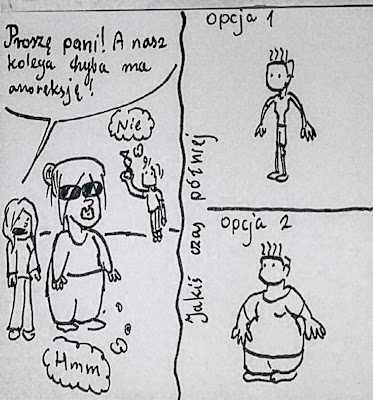 Proszę pani! A nasz
kolega chyba ma
anoreksję!
Nie
Hmm
Jakiś czas później
opcja 1
opcja 2